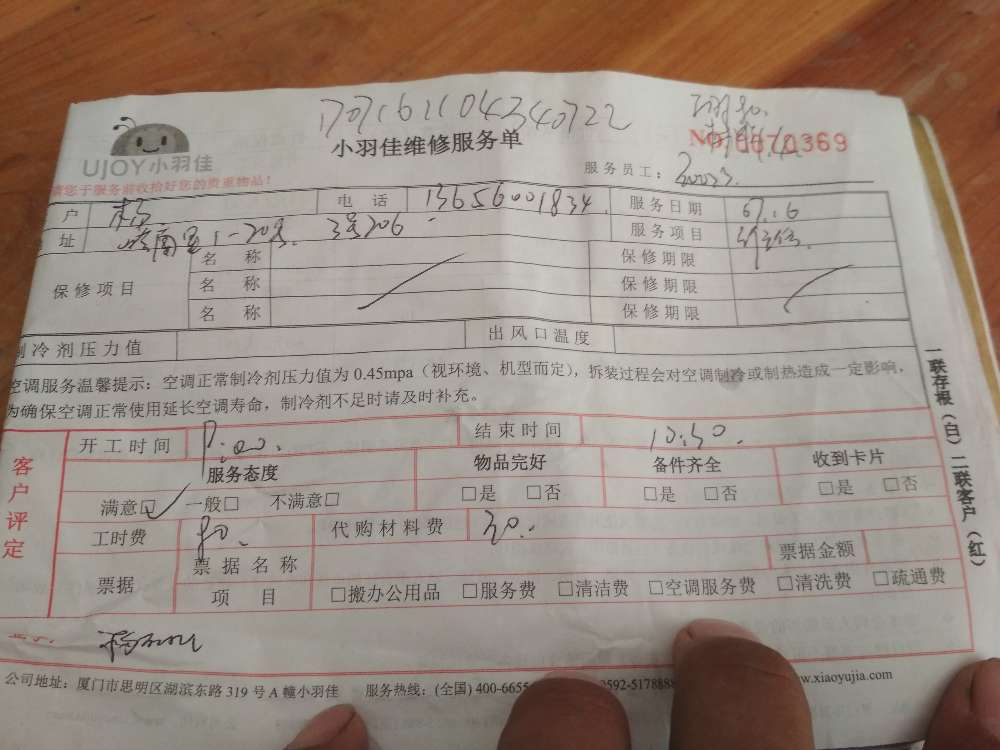 1707161104340722
UJOY小羽佳
小羽佳维修服务单
No 0070369
请您于服务前收拾好您的贵重物品!
服务员工:
户 杨 电话 13656001834 服务日期 07.16
址 1-20号 3号206 服务项目 维修
保修项目 名称 保修期限
名称 保修期限
名称 保修期限
制冷剂压力值 出风口温度
空调服务温馨提示:空调正常制冷剂压力值为0.45mpa(视环境、机型而定),拆装过程会对空调制冷或制热造成一定影响,
为确保空调正常使用延长空调寿命,制冷剂不足时请及时补充。
客户评定
开工时间 结束时间 10:30.
服务态度 物品完好 备件齐全 收到卡片
满意☑ 一般□ 不满意□ □是 □否 □是 □否 □是 □否
工时费 80. 代购材料费 30.
票据 票据名称 票据金额
项目 □搬办公用品 □服务费 □清洁费 □空调服务费 □清洗费 □疏通费
公司地址:厦门市思明区湖滨东路319号A幢小羽佳 服务热线:(全国)400-6655 0592-5178888 www.xiaoyujia.com
一联存根(白)二联客户(红)